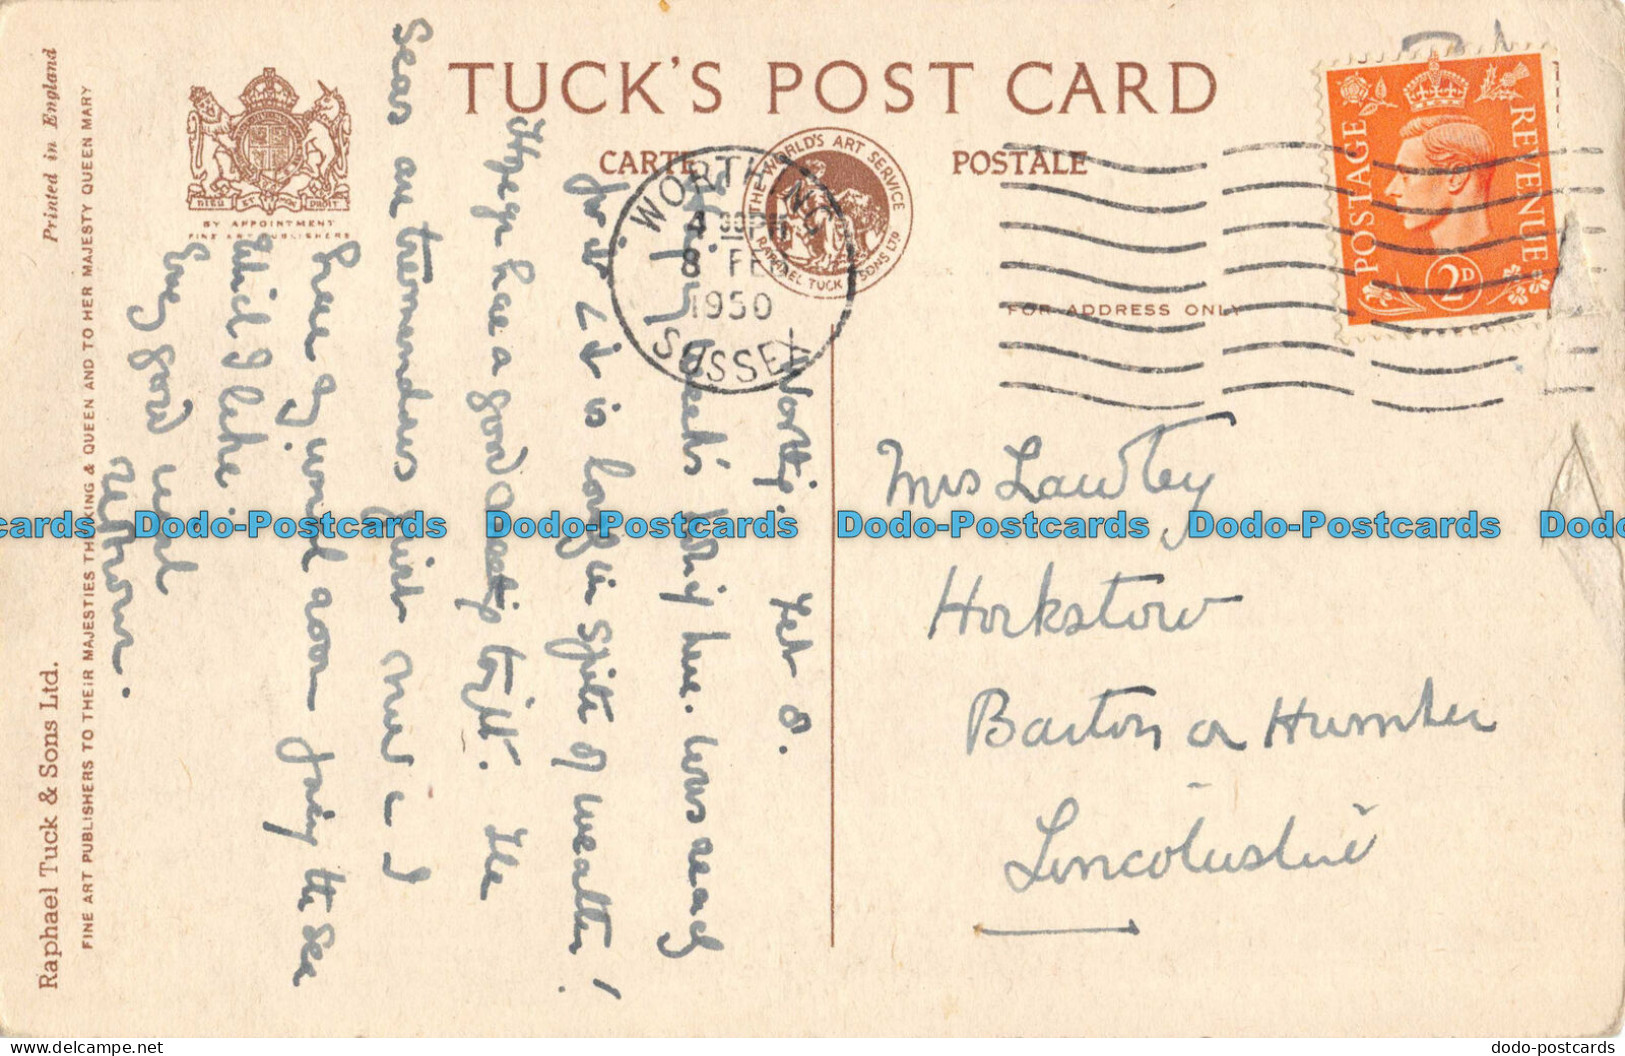 TUCK'S POST CARD
CARTE POSTALE
THE WORLD'S ART SERVICE
RAPHAEL TUCK & SONS LTD
FOR ADDRESS ONLY
BY APPOINTMENT
FINE ART PUBLISHERS
DIEU ET MON DROIT
Printed in England
Raphael Tuck & Sons Ltd.
FINE ART PUBLISHERS TO THEIR MAJESTIES THE KING & QUEEN AND TO HER MAJESTY QUEEN MARY
WORTHING
4 30 PM
8 FEB
1950
SUSSEX
POSTAGE REVENUE
2D
Worthing. Feb 8.
week's here. was ready
for it. It is lovely in spite of weather!
I hope have a good meeting tonight. The
Seas are tremendous just now & I
have a good going the sea
which I like.
Every good wish
Mrs Lawtey
Horkstow
Barton on Humber
Lincolnshire
Dodo-Postcards Dodo-Postcards Dodo-Postcards Dodo-Postcards Dodo-Postcards
www.delcampe.net
dodo-postcards